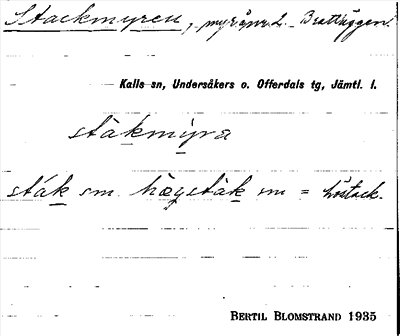 Stackmyren, myr åpnr 2. Brattäggen.
Kalls sn, Undersåkers o. Offerdals tg, Jämtl. l.
stàkmỳra
sták sm. hœgstàk sm = höstack.
BERTIL BLOMSTRAND 1935